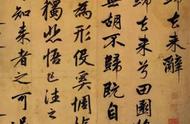 歸去来辭
歸去来兮田園
蕪胡不歸既自
為形役奚惆悵
獨悲悟已往之
知来者之可